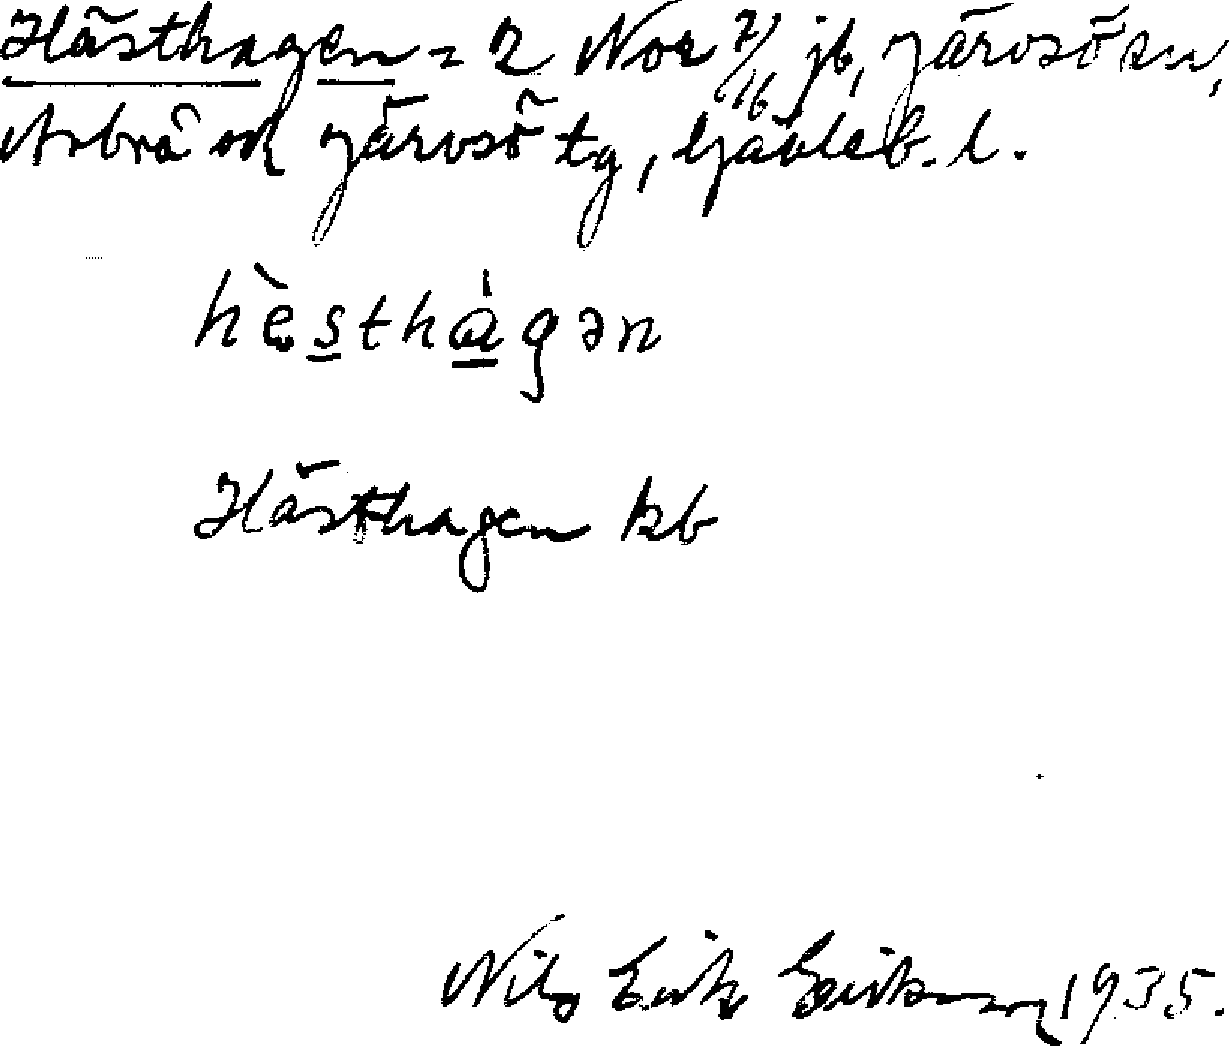 Hästhagen = 2 Nor 7/16 jb, Järvsö sn,
Arbrå och Järvsö tg, Gävleb. l.
hè̜s̲thá̲gən
Hästhagen kb
Nils Erik Eriksson 1935.